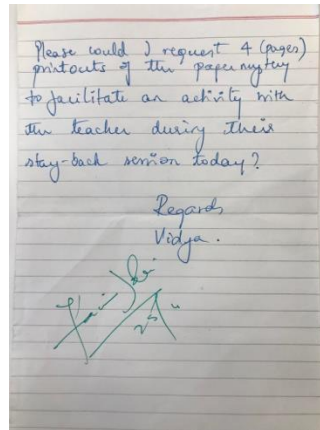 Please could I request 4 (pages)
printouts of the paper mystery
to facilitate an activity with
the teacher during their
stay-back session today?
Regards
Vidya.